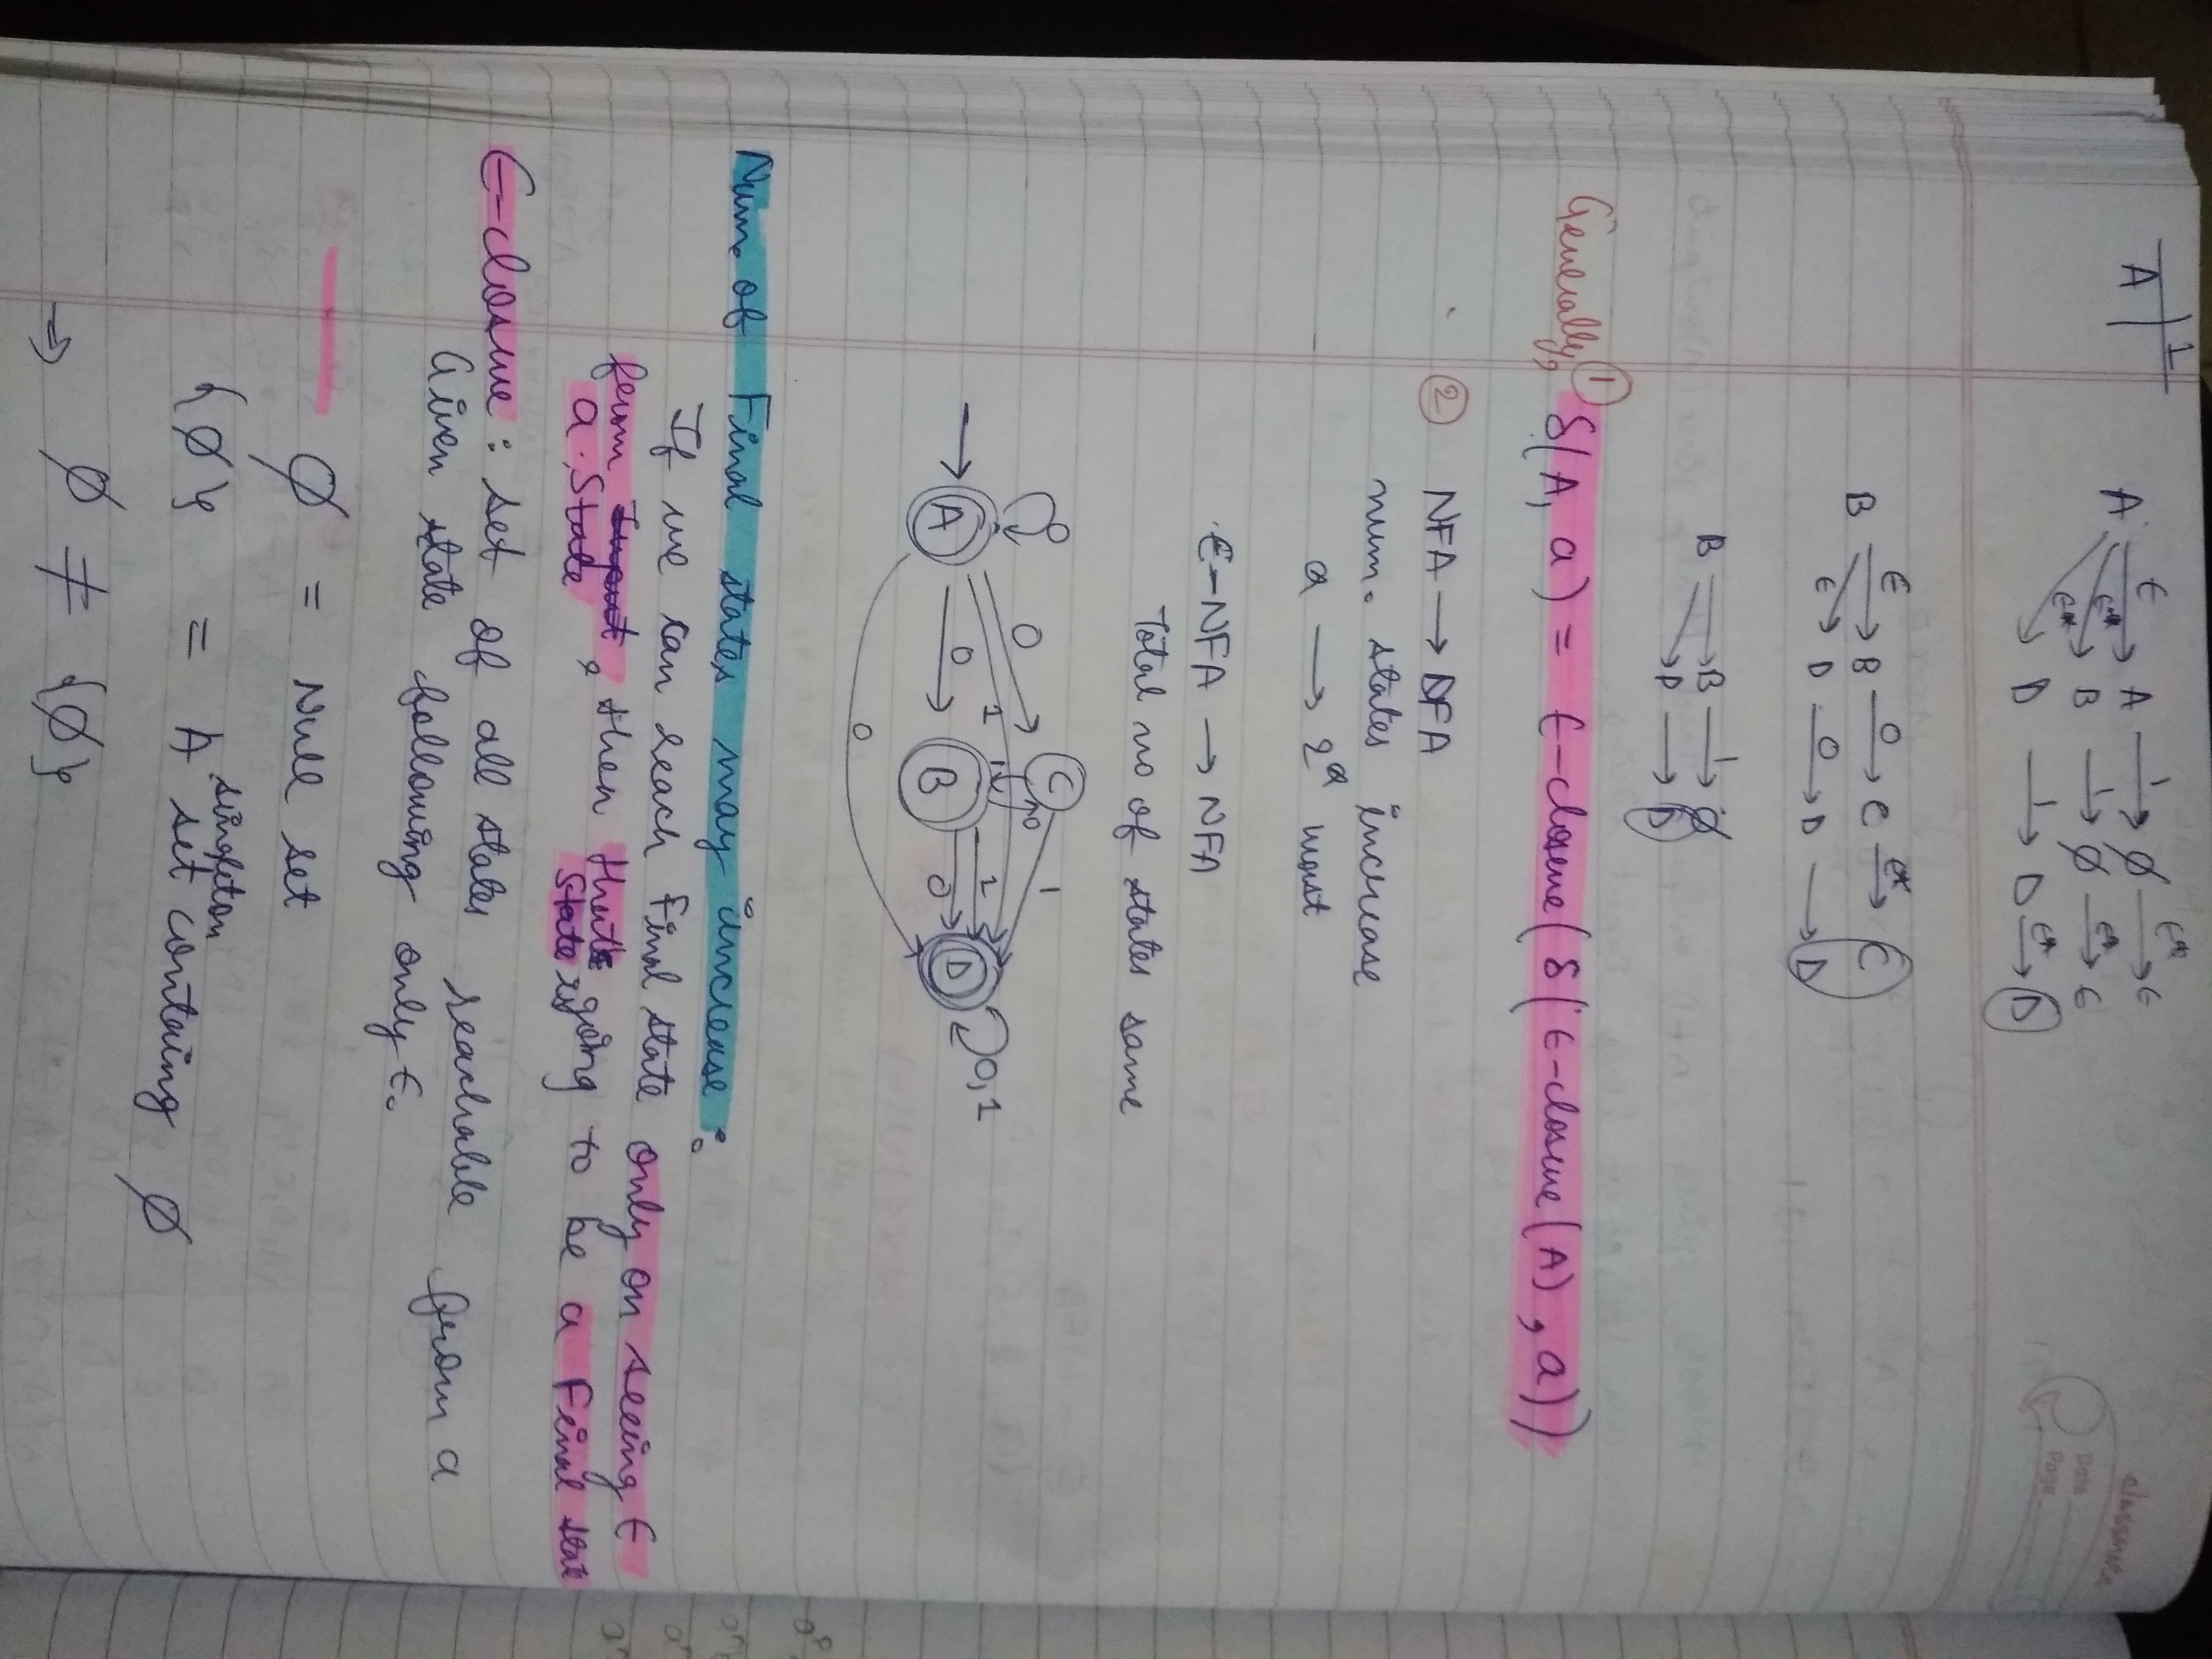 classmate
Date
Page
A | 1
A ϵ→ A 1→ ∅ ϵ*→ ϵ
ϵ*→ B 1→ ∅ ϵ*→ ϵ
ϵ*→ D 1→ D ϵ*→ D
B ϵ→ B 0→ C ϵ*→ C
ϵ→ D 0→ D → D
B → B 1→ ∅
→ D → D
Generally, ① δ(A, a) = ϵ-closure(δ(ϵ-closure(A), a))
② NFA → DFA
num. states increase
a → 2ᵃ worst
ϵ-NFA → NFA
Total no of states same
0
0 C
1 1 0 1
→ A 0 B 1 D 0,1
0
0
Num. of Final states may increase:
If we can reach final state only on seeing ϵ
from Input a State, then that state is going to be a Final state
ϵ-closure: set of all states reachable from a
Given state following only ϵ.
∅ = Null set
{∅} = A singleton set containing ∅
→ ∅ ≠ {∅}